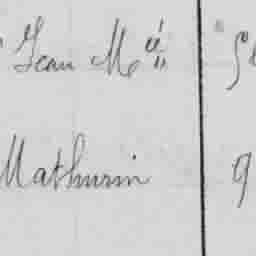 Jean Ma
Mathurin 9